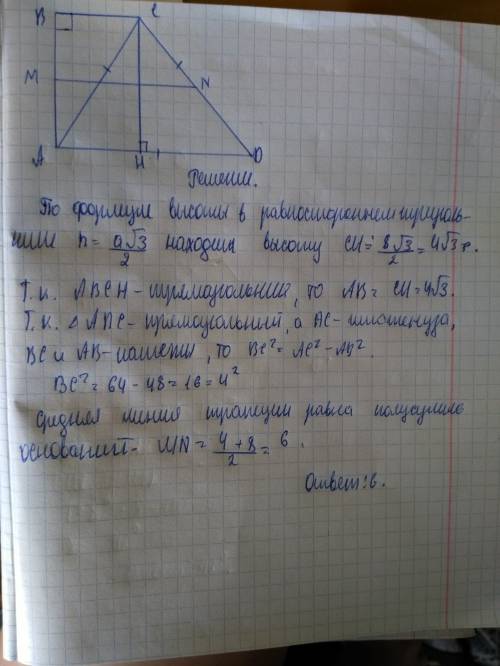 B C
M N
A H D
Решение.
По формуле высоты в равностороннем треуголь-
нике h = a√3/2 находим высоту CH = 8√3/2 = 4√3.
Т.к. ABCH - прямоугольник, то AB = CH = 4√3.
Т.к. △ ABC - прямоугольный, а AC - гипотенуза,
BC и AB - катеты, то BC² = AC² - AB².
BC² = 64 - 48 = 16 = 4²
Средняя линия трапеции равна полусумме
оснований - MN = (4+8)/2 = 6.
Ответ: 6.